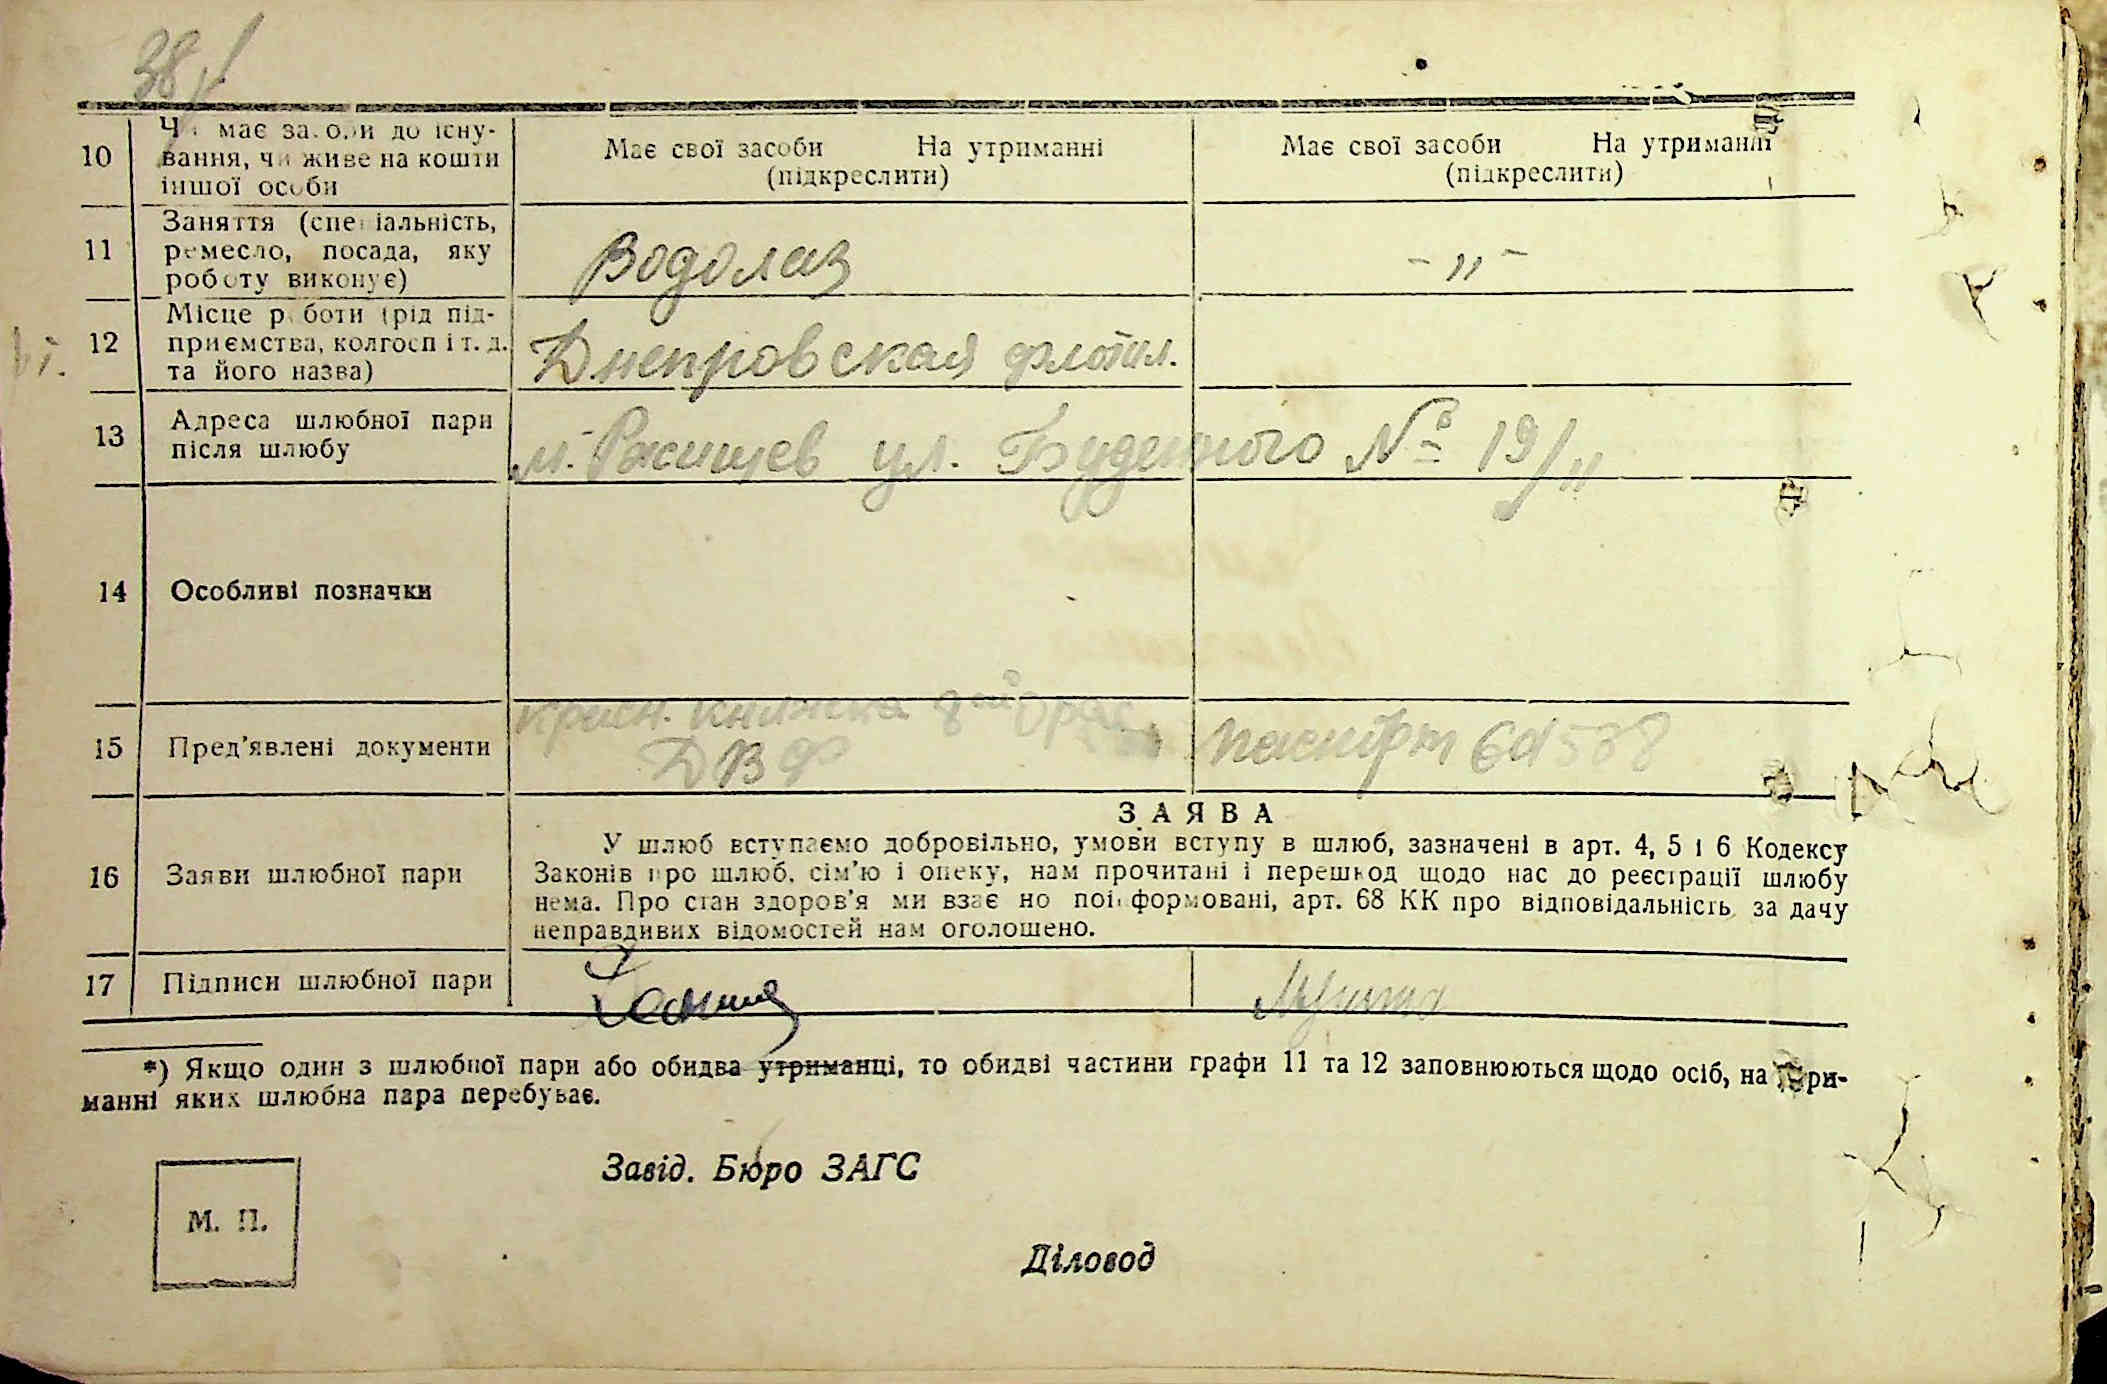 38
10 Чи має засоби до існу- Має свої засоби На утриманні Має свої засоби На утриманні
вання, чи живе на кошти (підкреслити) (підкреслити)
іншої особи
11 Заняття (спеціальність, Водолаз - " -
ремесло, посада, яку
роботу виконує)
12 Місце роботи (рід під- Днепровская флотил.
приємства, колгосп і т. д.
та його назва)
13 Адреса шлюбної пари м. Ржищев ул. Буденного № 19/11
після шлюбу
14 Особливі позначки
15 Пред'явлені документи красн. книжка паспорт
ДВФ
16 Заяви шлюбної пари
ЗАЯВА
У шлюб вступаємо добровільно, умови вступу в шлюб, зазначені в арт. 4, 5 і 6 Кодексу
Законів про шлюб, сім'ю і опеку, нам прочитані і перешкод щодо нас до реєстрації шлюбу
нема. Про стан здоров'я ми взаємно поінформовані, арт. 68 КК про відповідальність за дачу
неправдивих відомостей нам оголошено.
17 Підписи шлюбної пари
*) Якщо один з шлюбної пари або обидва утриманці, то обидві частини графи 11 та 12 заповнюються щодо осіб, на утри-
манні яких шлюбна пара перебуває.
Завід. Бюро ЗАГС
М. П.
Діловод